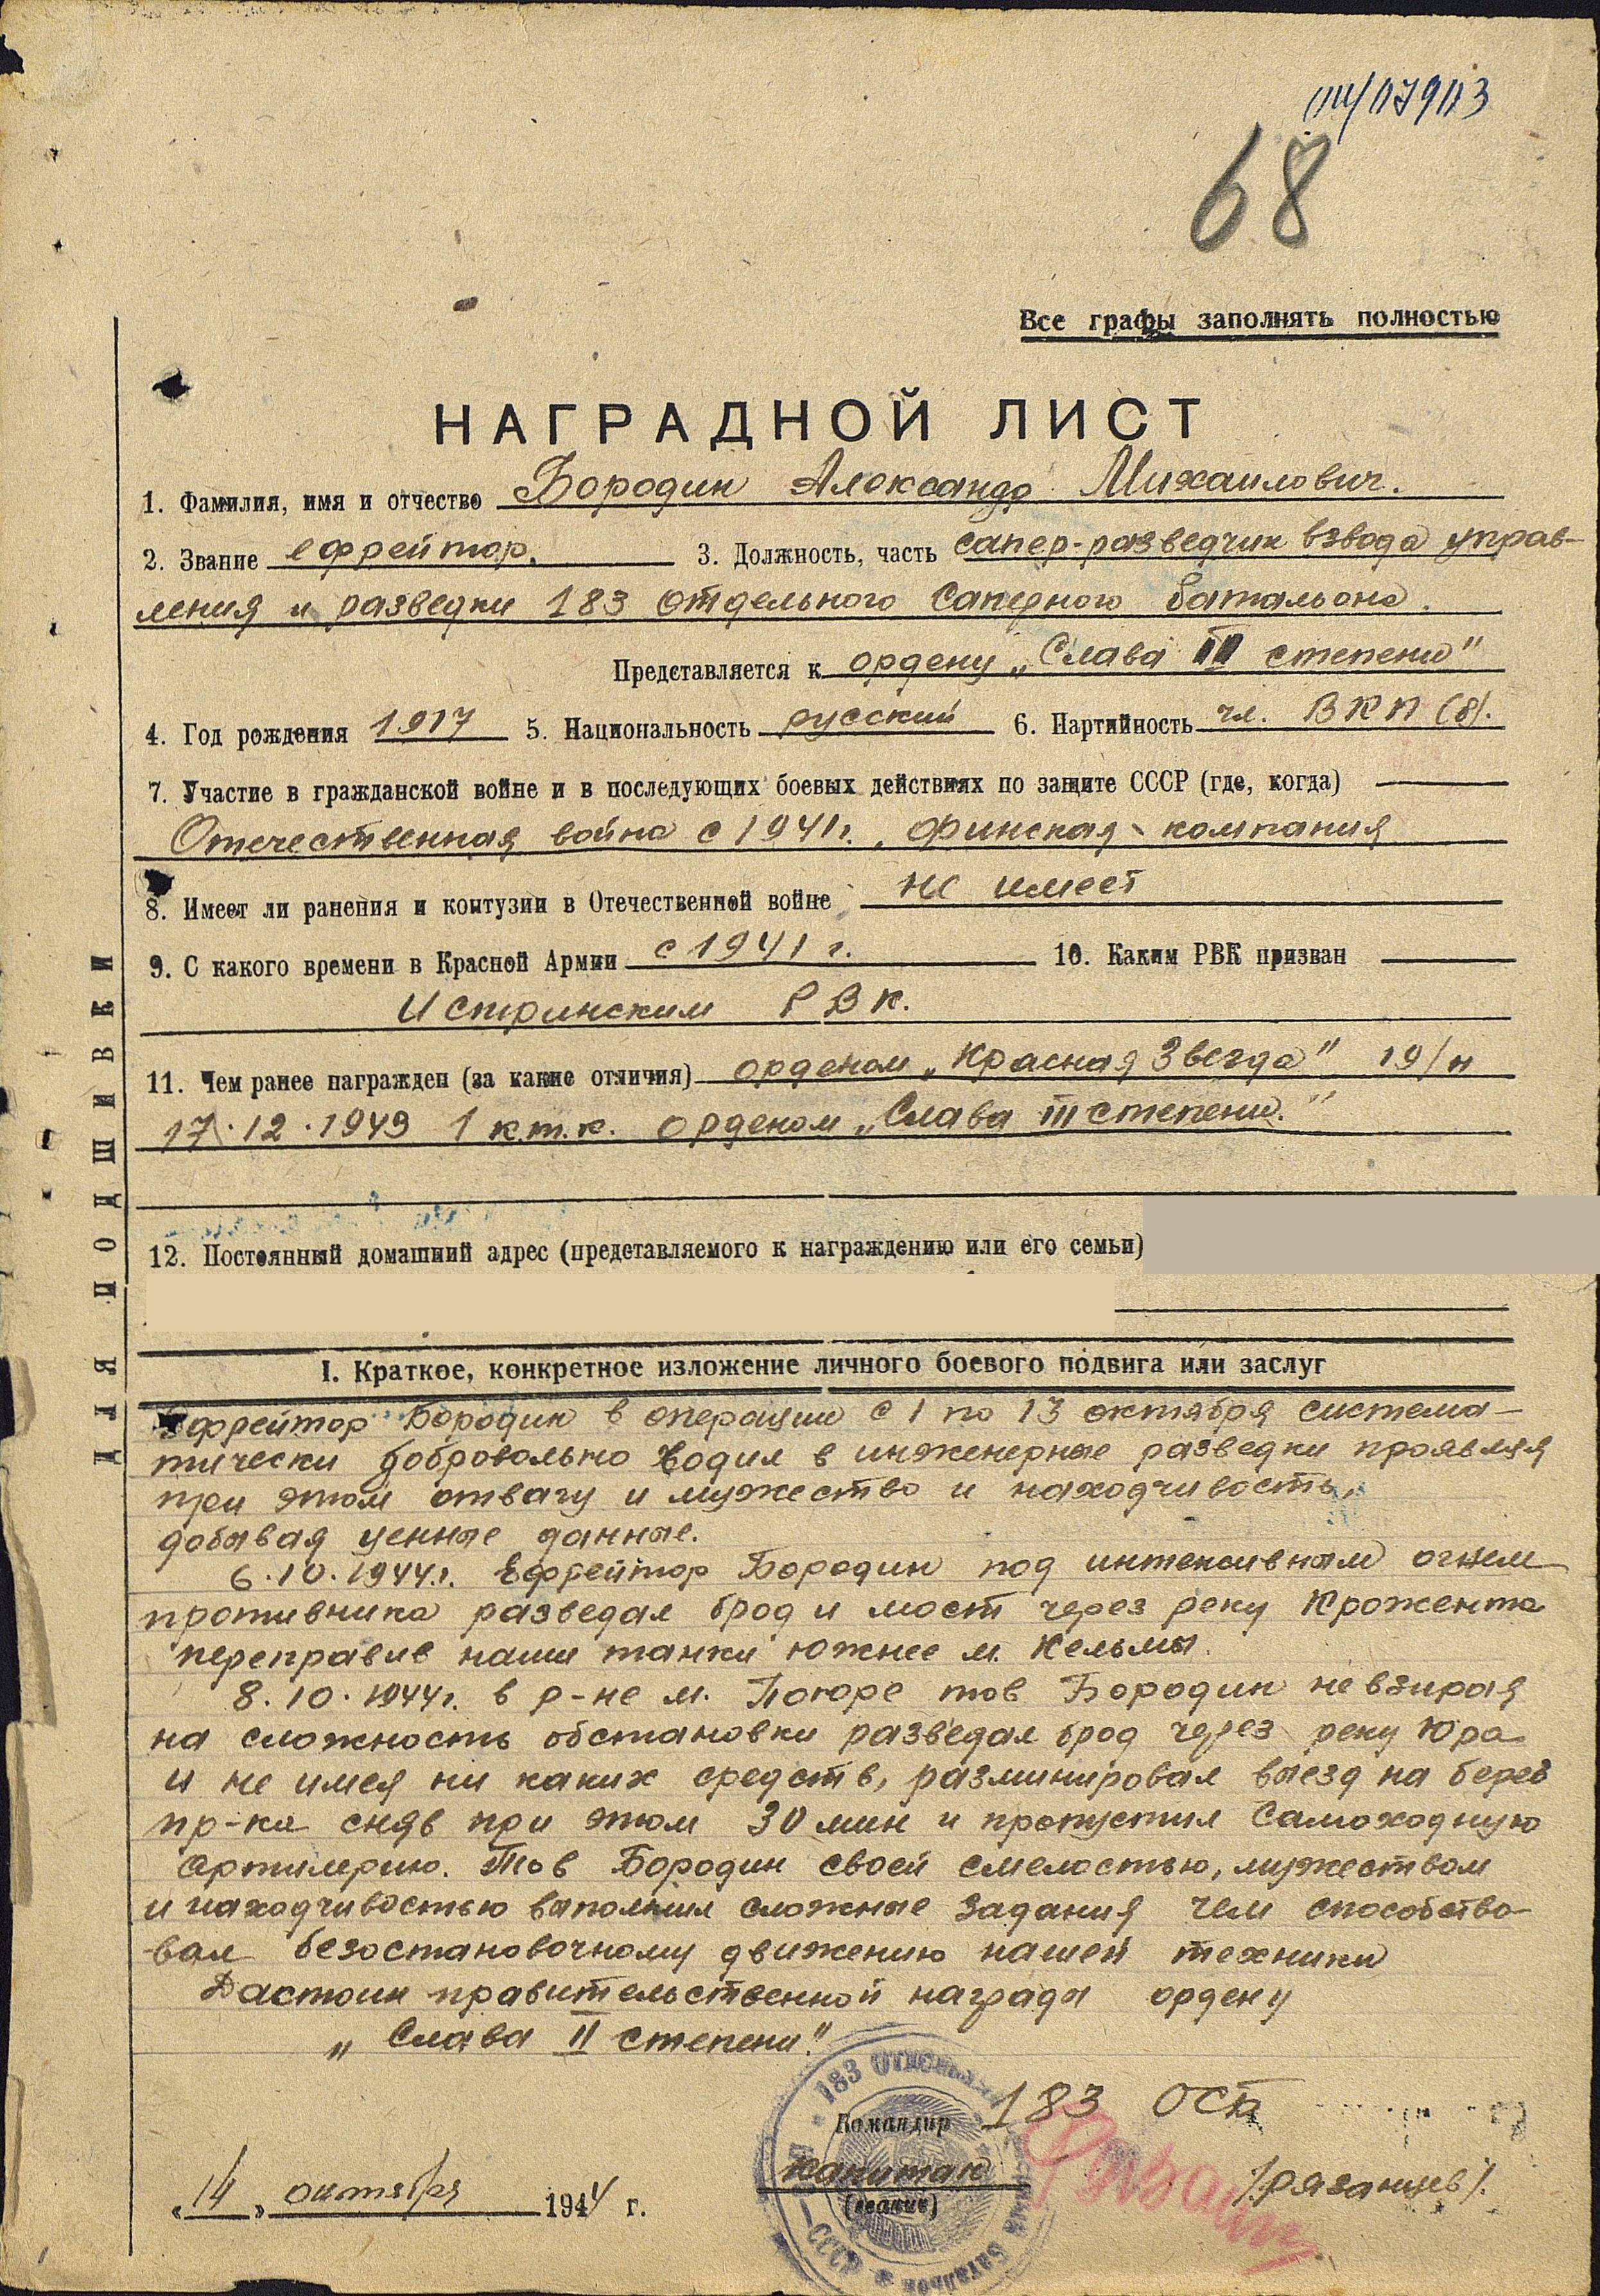 68
Все графы заполнять полностью
НАГРАДНОЙ ЛИСТ
1. Фамилия, имя и отчество Бородин Александр Михаилович.
2. Звание ефрейтор. 3. Должность, часть сапер-разведчик взвода управ-
ления и разведки 183 отдельного саперного батальона.
Представляется к ордену „Слава II степени"
4. Год рождения 1917 5. Национальность русский 6. Партийность чл. ВКП(б).
7. Участие в гражданской войне и в последующих боевых действиях по защите СССР (где, когда)
Отечественная война с 1941г., финская компания
8. Имеет ли ранения и контузии в Отечественной войне не имеет
9. С какого времени в Красной Армии с 1941 г. 10. Каким РВК призван
Истринским РВК.
11. Чем ранее награжден (за какие отличия) орденом „Красная Звезда" 19/н
17.12.1943 1 к.т.к. орденом „Слава III степени."
12. Постоянный домашний адрес (представляемого к награждению или его семьи)
ДЛЯ ПОДШИВКИ
I. Краткое, конкретное изложение личного боевого подвига или заслуг
Ефрейтор Бородин в операции с 1 по 13 октября система-
тически добровольно ходил в инженерные разведки проявляя
при этом отвагу и мужество и находчивость,
добывая ценные данные.
6.10.1944г. Ефрейтор Бородин под интенсивным огнем
противника разведал брод и мост через реку Крожента
переправив наши танки южнее м. Кельмы.
8.10.1944г. в р-не м. Погюре тов Бородин невзирая
на сложность обстановки разведал брод через реку Юра
и не имея ни каких средств, разминировал выезд на берег
пр-ка сняв при этом 30 мин и пропустил Самоходную
артилерию. Тов Бородин своей смелостью, мужеством
и находчивостью выполнил сложные задания чем способство-
вал безостановочному движению нашей техники
Дастоин правительственной награды ордену
„Слава II степени."
Командир 183 ОСБ
капитан /Рязанцев/.
(звание)
„14" октября 1944 г.